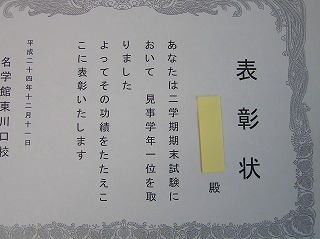 表彰状
殿
あなたは二学期期末試験に
おいて 見事学年一位を取
りました
よってその功績をたたえこ
こに表彰いたします
平成二十四年十二月十一日
名学館東川口校